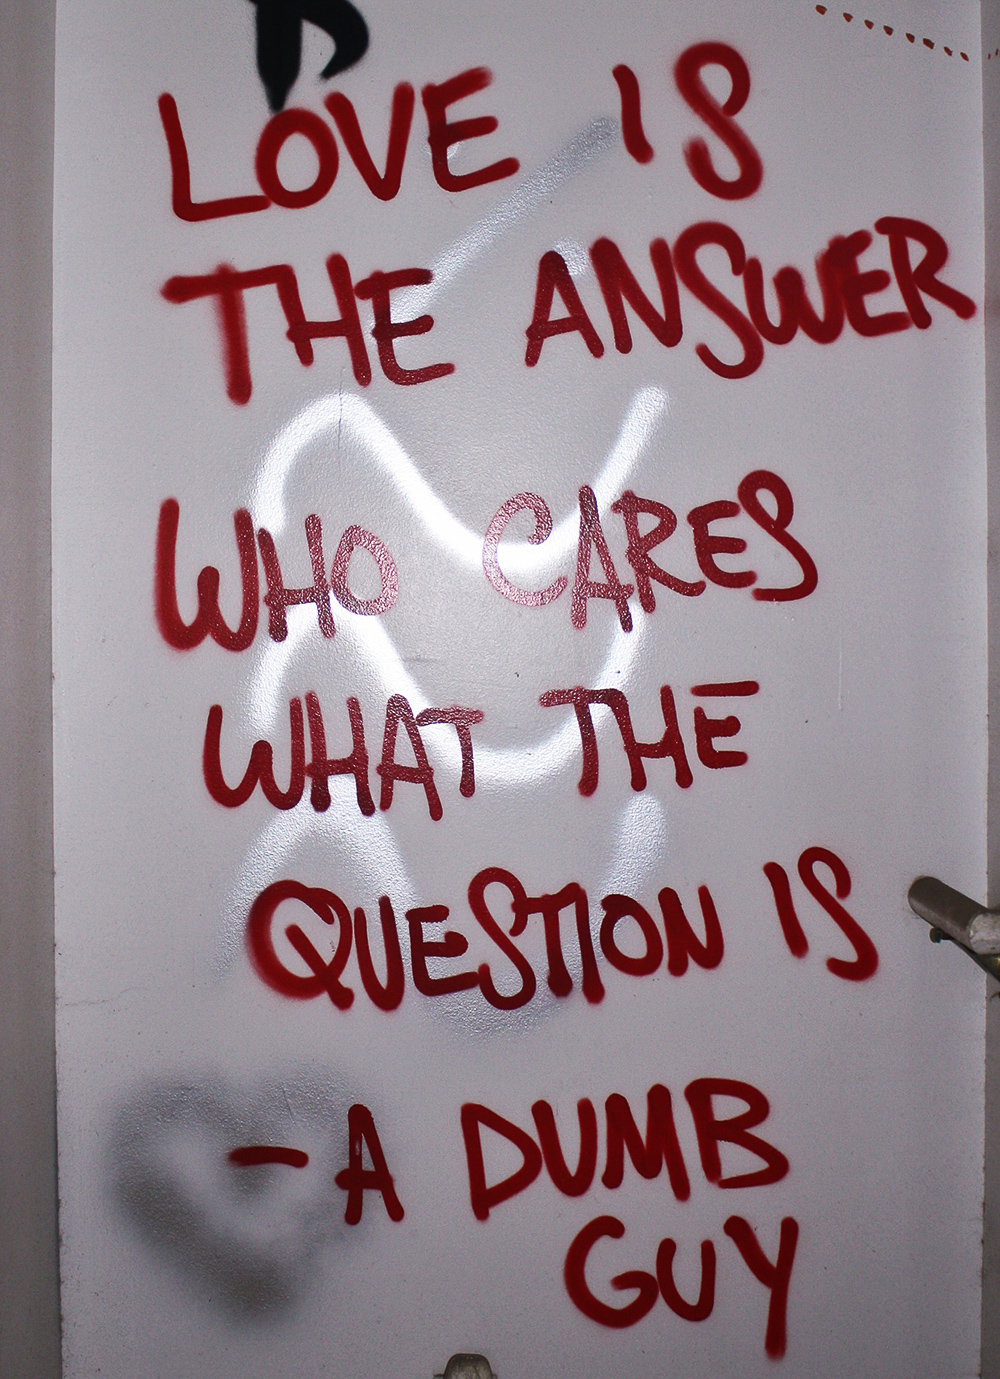 LOVE IS
THE ANSWER
WHO CARES
WHAT THE
QUESTION IS
- A DUMB
GUY